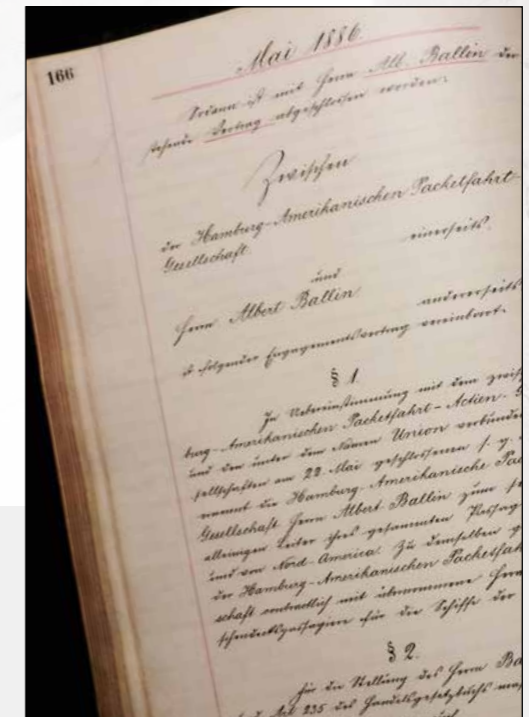 166
Mai 1886.
Sodann ist mit Herrn Alb. Ballin der
stehende Vertrag abgeschlossen worden:
Zwischen
der Hamburg-Amerikanischen Packetfahrt
Gesellschaft
einerseits.
und
Herrn Albert Ballin
andererseits
ist folgender Engagementsvertrag vereinbart.
§ 1.
In Uebereinstimmung mit dem zwisch
burg-Amerikanischen Packetfahrt-Actien-G
und den unter dem Namen Union verbunden
sellschaften am 22. Mai geschlossenen s. g.
ernennt die Hamburg-Amerikanische Pac
Gesellschaft Herrn Albert Ballin zum
alleinigen Leiter ihres gesammten Passag
und von Nord-America. Zu demselben
der Hamburg-Amerikanischen Packetfah
schaft contractlich mit übernommene Herr
schendeckspassagiere für die Schiffe der
§ 2.
Für die Stellung des Herrn Ba
Art 235 des Handelsgesetzbuchs